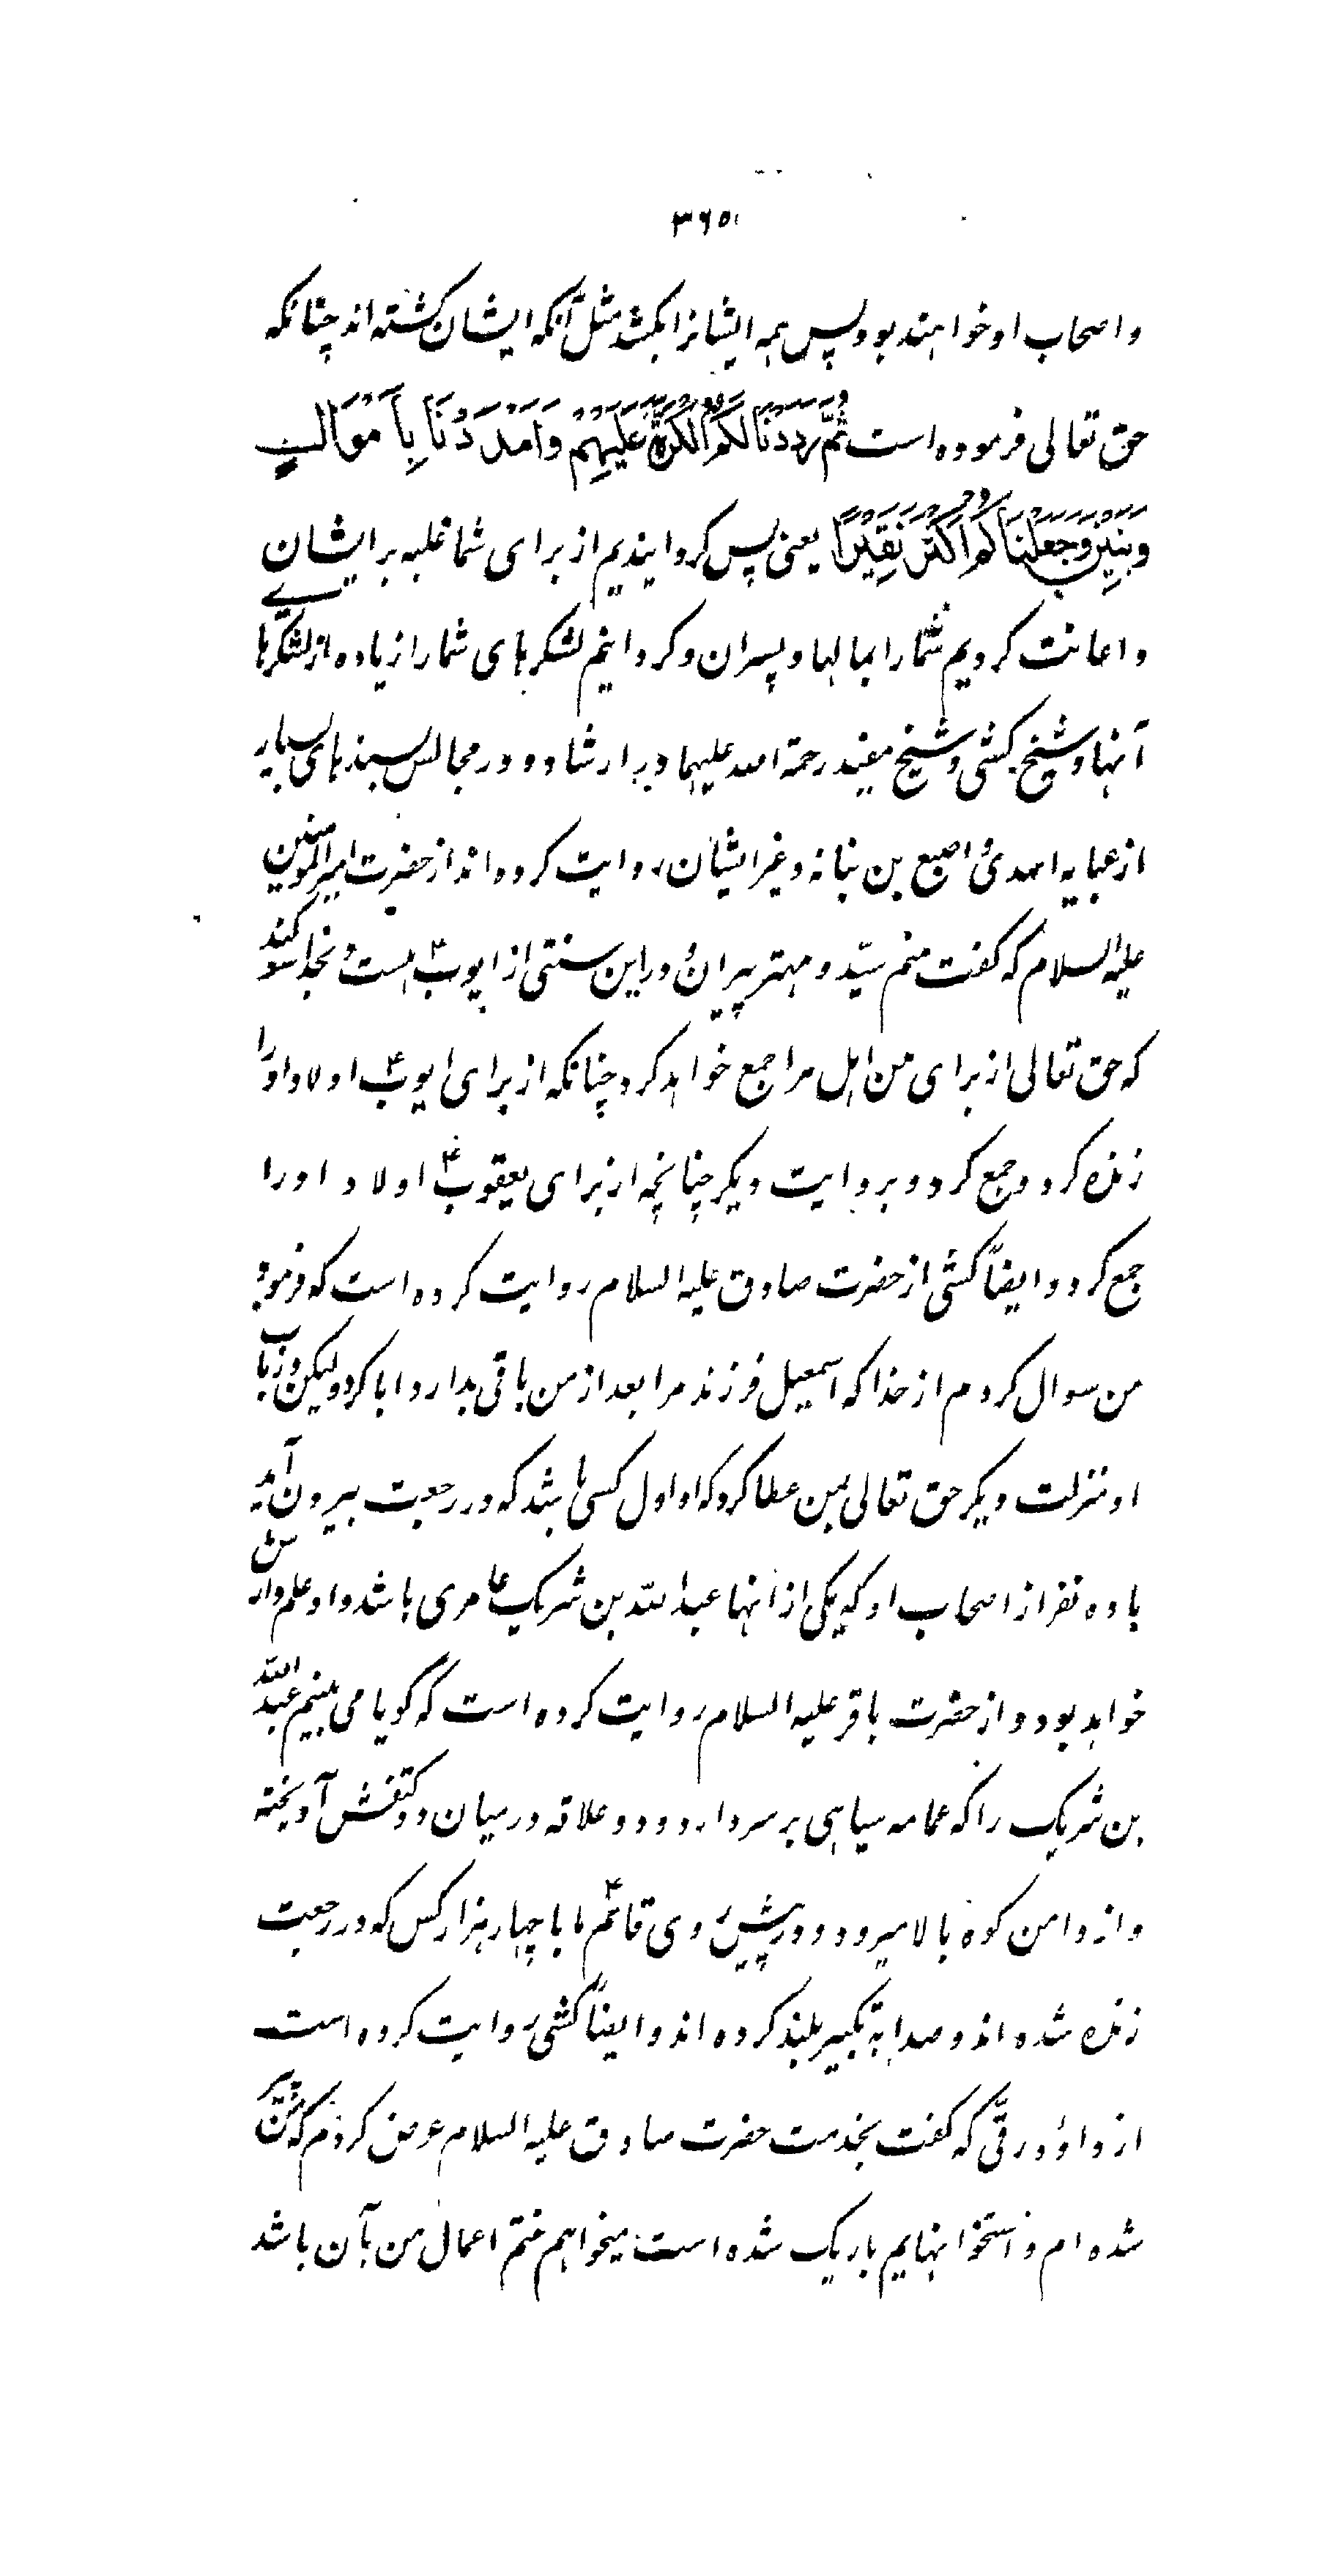 ۳۶۵
و اصحاب او خواهند بود پس همه ایشانرا بکشد مثل آنکه ایشان کشته اند چنانکه
حق تعالی فرموده است ثُمَّ رَدَدْنَا لَكُمُ الْكَرَّةَ عَلَيْهِمْ وَأَمْدَدْنَا بِأَمْوَالٍ
وَبَنِينَ وَجَعَلْنَاكُمْ أَكْثَرَ نَفِيرًا یعنی پس کردانیدیم از برای شما غلبه بر ایشان
و اعانت کردیم شما را بمالها و پسران و کردانیم لشکرهای شما را زیاده از لشکرهای
آنها و شیخ کشی و شیخ مفید رحمة الله علیهما در ارشاد و در مجالس بسندهای بسیار
از عبایه اسدی و اصبغ بن نباته و غیر ایشان روایت کرده اند از حضرت امیر المومنین
علیه السلام که کفت منم سیّد و مهتر پیران و در این سنتی از ایوبؑ هست و بخدا سوکند
که حق تعالی از برای من اهل مرا جمع خواهد کرد چنانکه از برای ایوبؑ اولاد او را
زنده کرد و جمع کرد و بروایت دیکر چنانچه از برای یعقوبؑ اولاد او را
جمع کرد و ایضاً کشی از حضرت صادق علیه السلام روایت کرده است که فرمود
من سوال کردم از خدا که اسمعیل فرزند مرا بعد از من باقی بدارد ابا کرد و لیکن در باب
او منزلت دیکر حق تعالی بمن عطا کرد که او اول کسی باشد که در رجعت بیرون آید
با ده نفر از اصحاب او که یکی از انها عبد الله بن شریک عامری باشد و او علم دارش
خواهد بود و از حضرت باقر علیه السلام روایت کرده است که گویا می بینم عبد الله
بن شریک را که عمامه سیاهی بر سر دارد و دو علاقه در میان دو کتفش آویخته
و از دامن کوه بالا میرود و در پیش روی قائمؑ ما با چهار هزار کس که در رجعت
زنده شده اند و صدا بتکبیر بلند کرده اند و ایضاً کشی روایت کرده است
از داود رقّی که کفت بخدمت حضرت صادق علیه السلام عرض کردم که من پیر
شده ام و استخوانهایم باریک شده است میخواهم ختم اعمال من بآن باشد